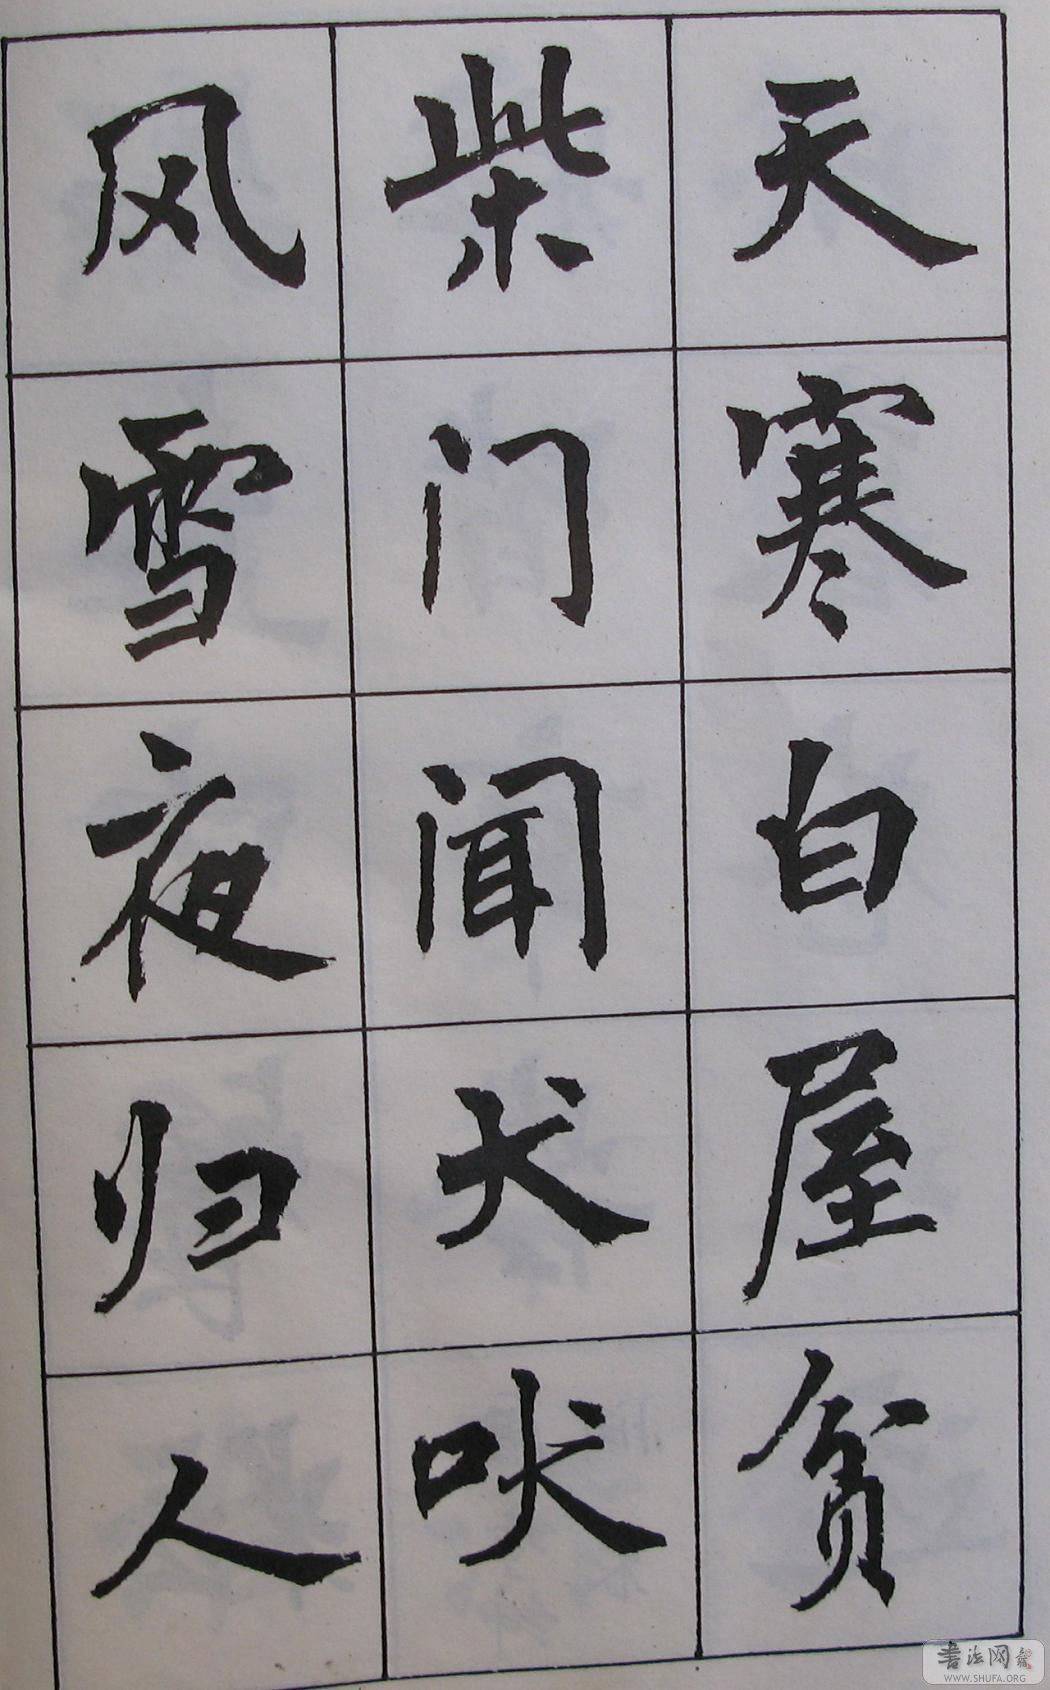 天寒白屋贫
柴门闻犬吠
风雪夜归人
书法网
WWW.SHUFA.ORG